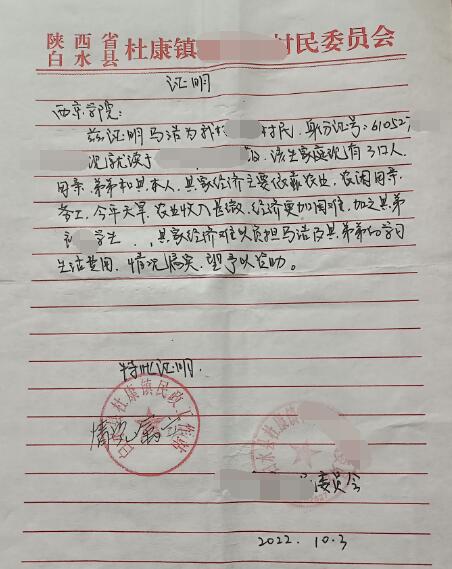 陕西省白水县杜康镇 村民委员会
证明
西京学院：
兹证明马洁为我村 村民，身份证号：610527
现就读于 该生家庭现有3口人，
母亲，弟弟和其本人，其家经济主要依靠农业，农闲母亲
务工，今年天旱，农业收入甚微，经济更加困难，加之其弟
学生，其家经济难以负担马洁及其弟弟的学习
生活费用，情况属实，望予以资助。
特此证明.
情况属实
白水县杜康镇民政工作站
白水县杜康镇
委员会
2022.10.3